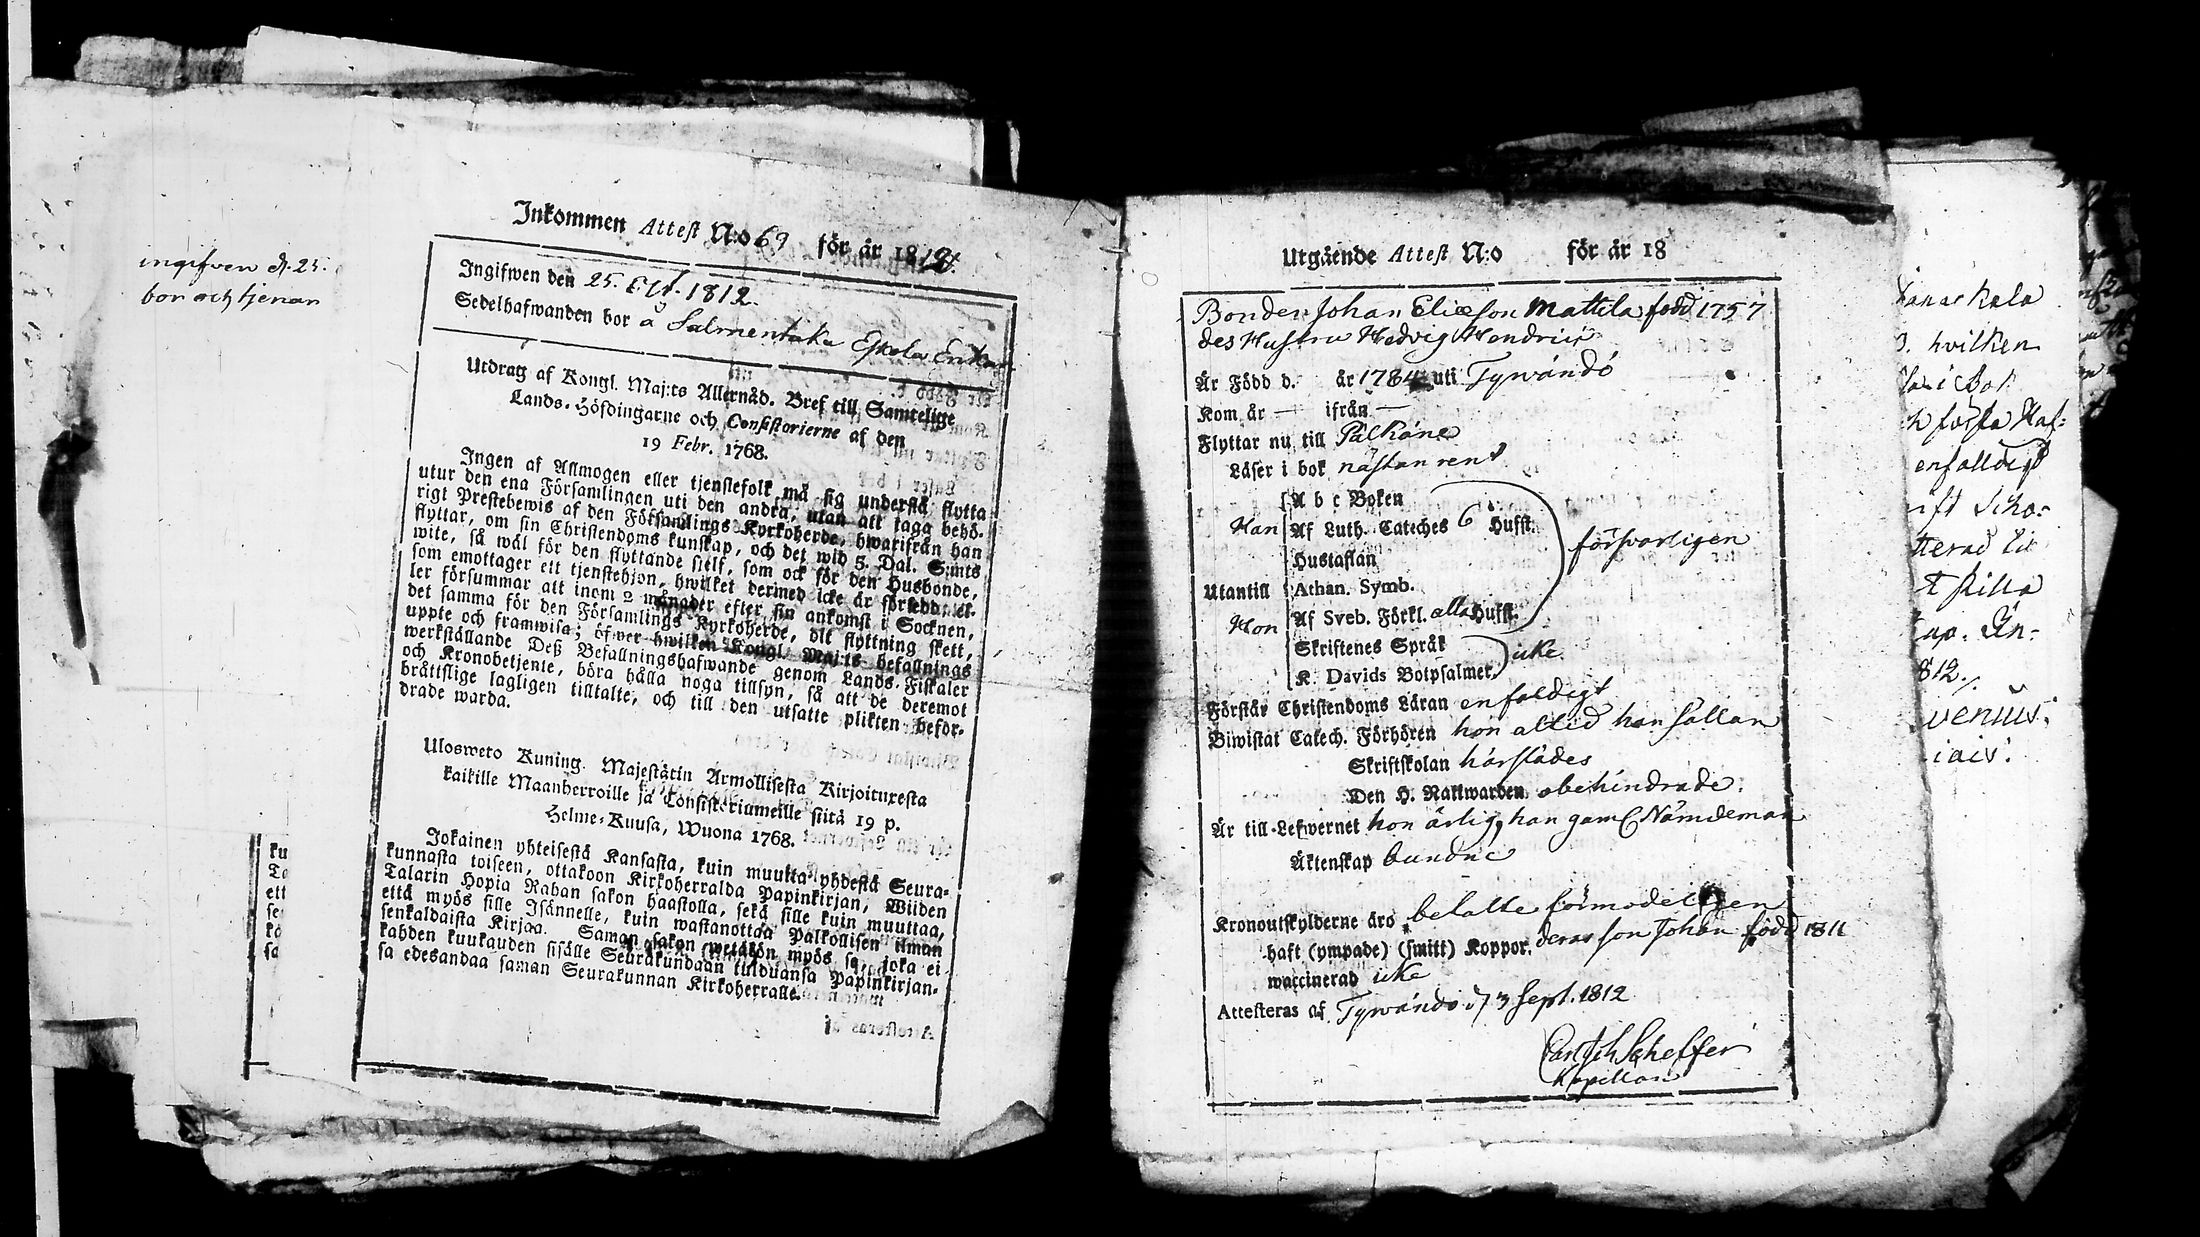 ingifven d. 25.
bor och tjenar
Inkommen Attest N:o 69 för år 1812.
Ingifwen den 25. 1812.
Sedelhafwanden bor å Salmentaka Eskola
Utdrag af Kongl. Maj:ts Allernåd. Bref till Samtelige
Lands-Höfdingarne och Consistorierne af den
19 Febr. 1768.
Ingen af Allmogen eller tjenstefolk må sig understå flytta
utur den ena Församlingen uti den andra, utan att taga behö-
rigt Prestebewis af den Församlings Kyrkoherde, hwarifrån han
flyttar, om sin Christendoms kunskap, och det wid 5. Dal. S:mts
wite, så wäl för den flyttande sielf, som ock för den Husbonde,
som emottager ett tjenstehjon, hwilket dermed icke är försedt; el-
ler försummar att inom 2 månader efter sin ankomst i Socknen,
det samma för den Församlings Kyrkoherde, dit flyttning skett,
uppte och framwisa; öfwer hwilken Kongl. Maj:ts befallnings
werkställande Deß Befallningshafwande genom Lands-Fiskaler
och Kronobetjente, böra hålla noga tillsyn, så att de deremot
bråttslige lagligen tilltalte, och till den utsatte plikten befor-
drade warda.
Ulosweto Kuning. Majestätin Armollisesta Kirjoituxesta
kaikille Maanherroille ja Consistoriumeille siitä 19 p.
Helme-Kuusa, Wuona 1768.
Jokainen yhteisestä Kansasta, kuin muutta yhdestä Seura-
kunnasta toiseen, ottakoon Kirkoherralda Papinkirjan, Wiiden
Talarin Hopia Rahan sakon haastolla, sekä sille kuin muuttaa,
että myös sille Isännelle, kuin wastanottaa Palkollisen ilman
senkaldaista Kirjaa. Saman sakon wetäkön myös se, joka ei
kahden kuukauden sisälle Seurakundaan tulduansa Papinkirjan-
sa edesandaa saman Seurakunnan Kirkoherralle.
ku
Ta
ett
se
ka
sa
Utgående Attest N:o för år 18
Bonden Johan Eliæson Mattila född 1757
des Hustru Hedvig Hendrics
Är Född d. år 1784 uti Tyrwändö
Kom år — ifrån —
Flyttar nu till Pälkäne
Läser i bok nästan rent
A b c Boken
Han Af Luth. Cateches 6 Hufst. försvarligen
Hustaflan
Utantill Athan. Symb.
Hon Af Sveb. Förkl. alla Hufst.
Skriftenes Språk icke
K. Davids Botpsalmer
Förstår Christendoms Läran enfaldigt
Biwistat Catech. Förhören hon altid han sällan
Skriftskolan härstädes
Den H. Nattwarden obehindrade.
Är till Lefwernet hon ärlig, han gaml Nämdeman
Äktenskap bundne
Kronoutskylderne äro betalte förmodeligen
haft (ympade) (smitt) Koppor. deras son Johan född 1811
waccinerad icke
Attesteras af Tyrwändö d. 3 Sept. 1812
Carl Joh Scheffer
Kapellan
hvilken
i Bok
första Naf-
enfalldigt
ift Scho-
ap. Än-
812.